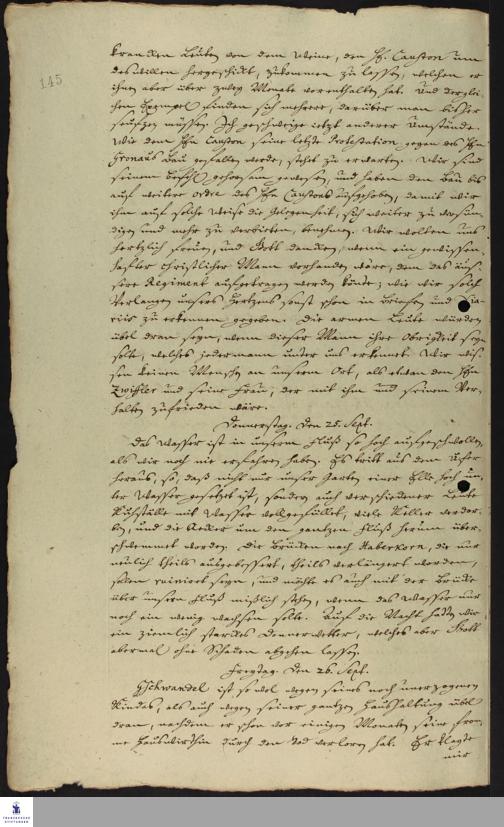 145
krancken Leuten von dem Weine, den H. Causton um
deswillen hergeschickt, zukommen zu lassen, welchen er
ihnen aber über zwey Monate vorenthalten hat. Und derglei-
chen Exempel finden sich mehrere, darüber man bisher
seufzen müssen. Ich geschweige jetzt anderer Umstände.
Wie dem Hn Causton seine letzte Protestation gegen des Hn
Gronaus Bau gefallen werde, stehet zu erwarten. Wir sind
seinem Befehl gehorsam gewesen, und haben den Bau bis
auf weitere ordre des Hn Caustons aufgehoben, damit wir
ihm auf solche Weise die Gelegenheit, sich weiter zu versün-
digen und mehr zu verbieten, benehmen. Wir wolten uns
hertzlich freuen, und Gott dancken, wenn ein gewissen-
hafter christlicher Mann vorhanden wäre, dem das äus-
sere Regiment aufgetragen werden könte; wie wir solch
Verlangen unseres Hertzens sonst schon in Briefen und Dia-
riis zu erkennen gegeben. Die armen Leute würden
übel dran seyn, wenn dieser Mann ihre Obrigkeit seyn
solte, welches jedermann unter uns erkennet. Wir wis-
sen keinen Menschen an unserm Ort, als etwan den Hn
Zwiffler und seine Frau, der mit ihm und seinem Ver-
halten zufrieden wäre.
Donnerstag. Den 25. Sept.
Das Wasser ist in unserm Fluß so hoch aufgeschwollen
als wir noch nie erfahren haben. Es tritt aus dem Ufer
heraus, so, daß nicht nur unser Garten einer Elle hoch un-
ter Wasser gesetzet ist, sondern auch verschiedener Leute
Kuhställe mit Wasser vollgefüllet, viele Keller verdor-
ben, und die Aecker um den gantzen Fluß herum über-
schwemmet worden. Die Brücken nach Habercorn, die nur
neulich theils ausgebessert, theils verlängert worden,
sollen ruiniret seyn, und möchte es auch mit der Brücke
über unsern Fluß mißlich stehen, wenn das Wasser nur
noch ein wenig wachsen solte. Auf die Nacht hatten wir
ein ziemlich starckes Donnerwetter, welches aber Gott
abermal ohne Schaden abgehen lassen.
Freytag. Den 26. Sept.
Gschwandel ist so wol wegen seines noch unerzogenen
Kindes, als auch wegen seiner gantzen Haushaltung übel
dran, nachdem er schon vor einigen Monaten seine from-
me Hauswirthin durch den Tod verloren hat. Er klagte
mir
FRANCKESCHE
STIFTUNGEN